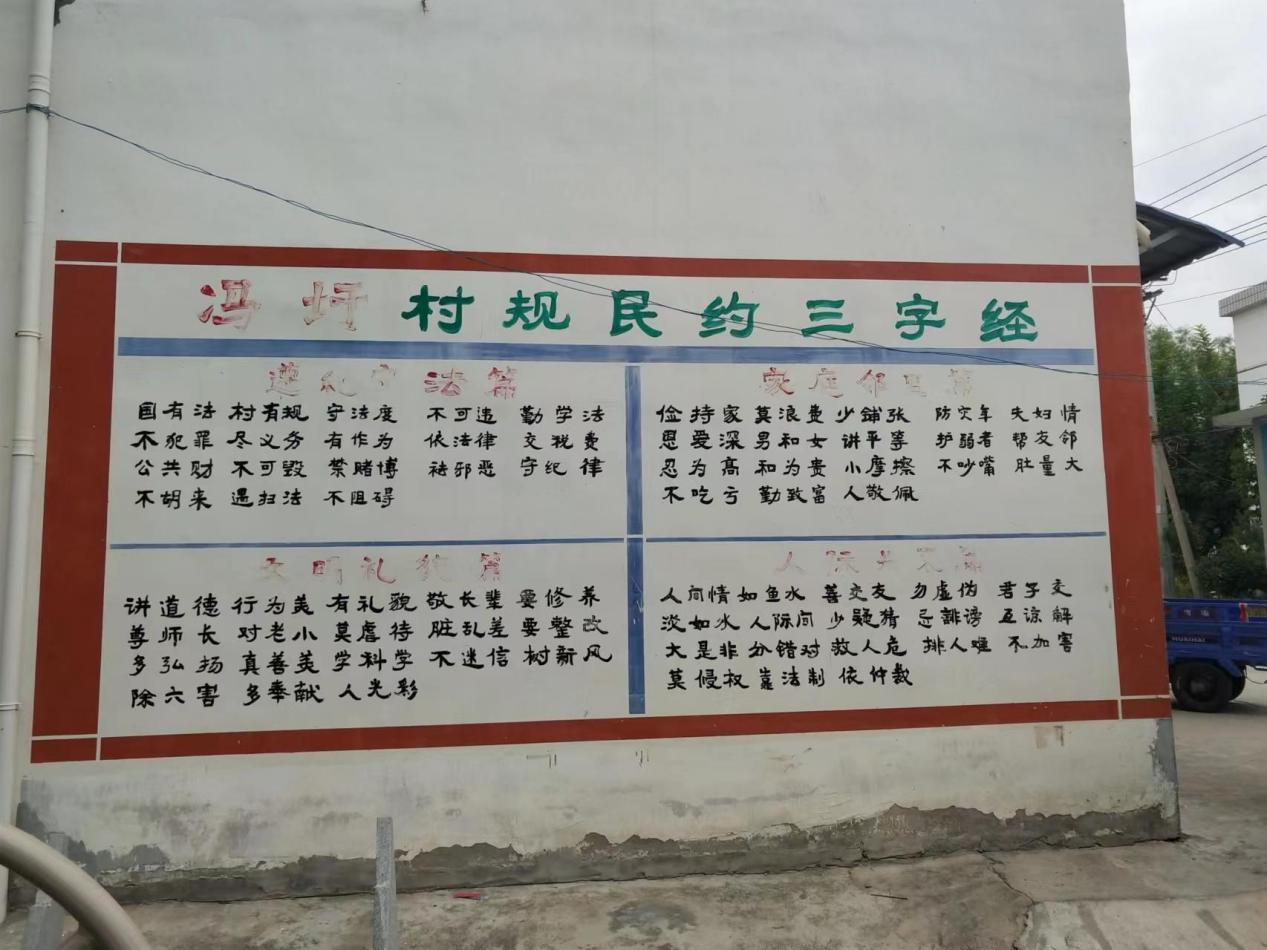 冯圩村规民约三字经
遵纪守法篇
国有法 村有规 守法度 不可违 勤学法
不犯罪 尽义务 有作为 依法律 交税费
公共财 不可毁 禁赌博 祛邪恶 守纪律
不胡来 遇扫法 不阻碍
家庭邻里篇
俭持家 莫浪费 少铺张 防灾年 夫妇情
恩爱深 男和女 讲平等 护弱者 帮友邻
忍为高 和为贵 小摩擦 不吵嘴 肚量大
不吃亏 勤致富 人敬佩
文明礼貌篇
讲道德 行为美 有礼貌 敬长辈 要修养
尊师长 对老小 莫虐待 脏乱差 要整改
多弘扬 真善美 学科学 不迷信 树新风
除六害 多奉献 人光彩
人际关系篇
人间情 如鱼水 善交友 勿虚伪 君子交
淡如水 人际间 少疑猜 忌诽谤 互谅解
大是非 分错对 救人危 排人难 不加害
莫侵权 靠法制 依仲裁